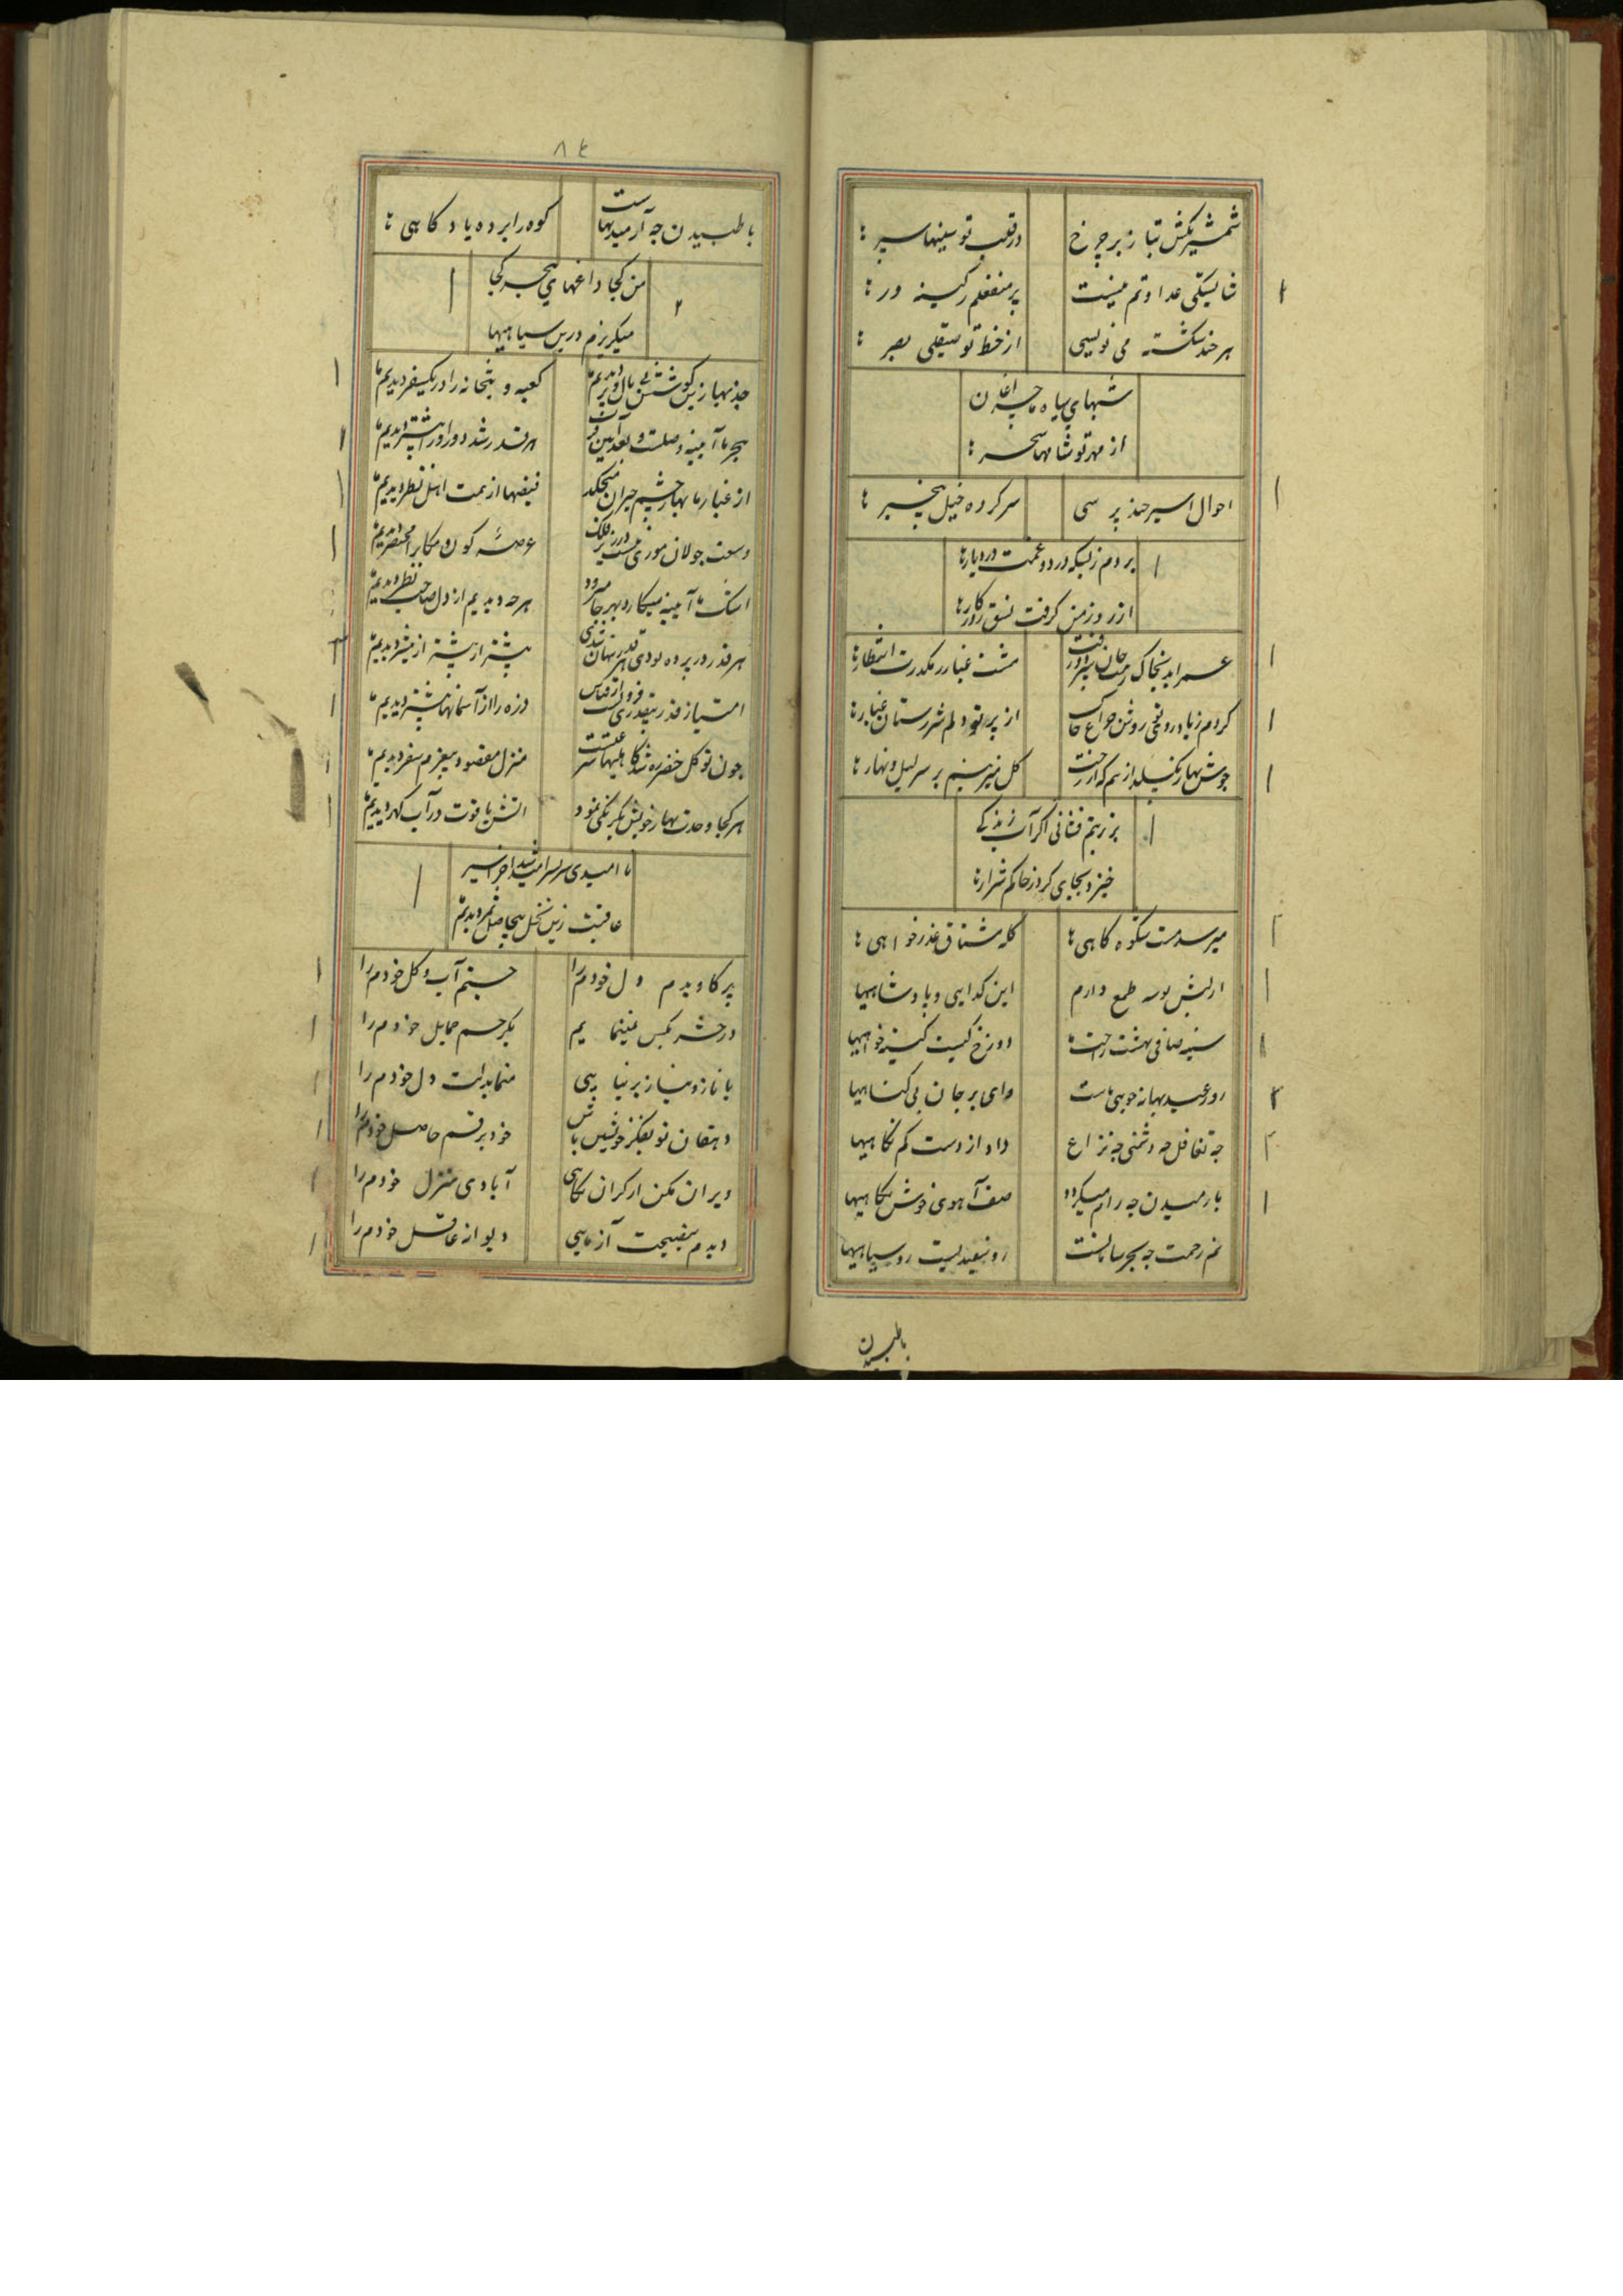 شمشیر بکش بتاز بر چرخ
در قلب تو سینها سپر ها
شایستگی عداوتم نیست
پر منفعلم ز کینه ور ها
هر چند شکسته می نویسی
از خط تو صیقلی بصر ها
شبهای سیاه ما چراغان
از مهر تو شامها سحر ها
احوال اسیر چند پرسی
سر کرده خیل بیخبر ها
بردم ز بسکه درد و غمت در دیارها
از روز من گرفت نسق روزگارها
عمر ابد بخاک رهت جان سپرد و رفت
مشت غبار رهگذرت انتظارها
کردم زیاد روئی روشن چراغ خاک
از پرتو دلم شررستان غبارها
جوش بهار یکنیله از هم که از رخت
گل میزنیم بر سر لیل و نهارها
بر تربتم فشانی اگر آب زندگی
خیزد بجای گرد ز خاکم شرارها
میرسد مست شکوه گاهی ها
گله مشتاق عذرخواهی ها
از لبش بوسه طمع دارم
این گدایی و پادشاهیها
سینه صافی بهشت راحتها
دوزخ کیست کینه خواهیها
روز عید بهانه جویی ماست
وای بر جان بی گناهیها
چه تغافل چه دشمنی چه نزاع
داد از دست کم نگاهیها
با رمیدن چه رام میگردد
صف آهوی خوش نگاهیها
نم رحمت چه بحر سامانست
رو سفیدیست رو سیاهیها
با طپیدن
٨٤
با طپیدن چه آرمیدنهاست
کوه را برده یاد کاهی ها
من کجا داغهای هجر کجا
میگریزم درین سیاهیها
جذبها زین گوشش بی بال و پر دیدیم ما
کعبه و بتخانه را در یکسفر دیدیم ما
هجر ما آیینه وصلت و بعد آیین قرب
هر قدر شد دور او را پیشتر دیدیم ما
از غبار ما بهار چشم حیران میچکد
فیضها از همت اهل نظر دیدیم ما
وسعت جولان موری نیست در زیر فلک
عرصه کون و مکانرا مختصر دیدیم ما
اشک ما آیینه میکارد بهر جا میرود
هر چه دیدیم از دل صاحب نظر دیدیم ما
هر قدر در پرده بودی هر قدر پنهان شدی
بیشتر از بیشتر از بیشتر دیدیم ما
امتیاز قدر بیقدری فزون است از قیاس
ذره را از آسمانها بیشتر دیدیم ما
چون توکل خضر ره شد کاهلیها سرعتست
منزل مقصود بیعزم سفر دیدیم ما
هر کجا وحدت بهار خویش یکرنگی نمود
آتش یاقوت در آب گهر دیدیم ما
ناامیدی سر بسر امید شد آخر اسیر
عاقبت زین نخل بیحاصل ثمر دیدیم ما
پر کاویدم دل خودم را
جستم آب و گل خودم را
در حشر بکس نمینمایم
بگر جسم حمایل خودم را
با ناز و نیاز بر نیایی
منما بدلت دل خودم را
دهقان تو بفکر خویش باش
خود برقم حاصل خودم را
ویران مکن از گران نگاهی
آبادی منزل خودم را
دیدم بنصیحت آزمایی
دیوانه عاقل خودم را